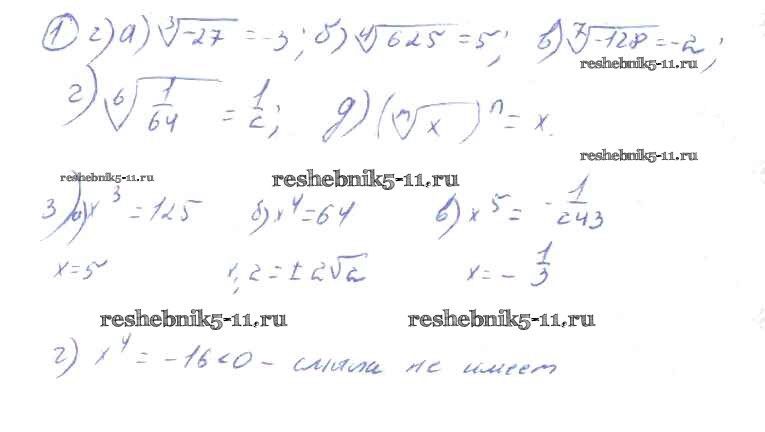 ① 2) а) ∛-27 = -3; б) ∜625 = 5; в) ⁷√-128 = -2;
reshebnik5-11.ru
г) ⁶√1/64 = 1/2; д) (ⁿ√x)ⁿ = x.
reshebnik5-11.ru
reshebnik5-11.ru
reshebnik5-11.ru
3) а) x³ = 125 б) x⁴ = 64 в) x⁵ = -1/243
x = 5 x₁,₂ = ± 2√2 x = - 1/3
reshebnik5-11.ru
reshebnik5-11.ru
г) x⁴ = -16 < 0 - смысла не имеет